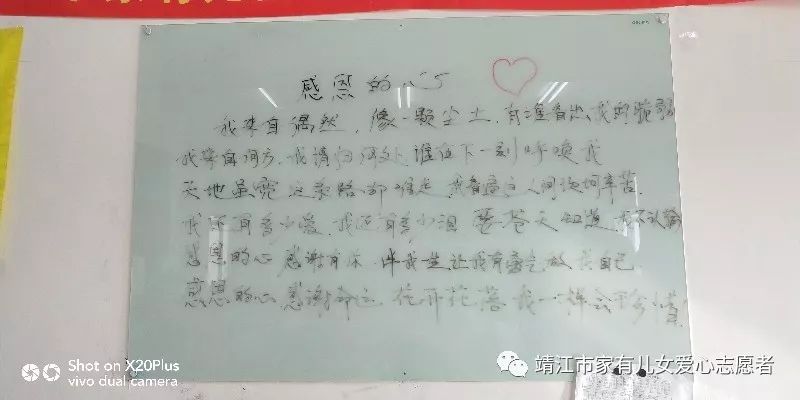 感恩的心
我来自偶然,像一颗尘土,有谁看出我的脆弱
我来自何方,我情归何处,谁在下一刻呼唤我
天地虽宽 这条路却难走 我看遍这人间坎坷辛苦
我还有多少爱,我还有多少泪 要苍天知道 我不认输
感恩的心 感谢有你 伴我一生让我有勇气做我自己
感恩的心 感谢命运 花开花落 我一样会珍惜
Shot on X20Plus
vivo dual camera
靖江市家有儿女爱心志愿者